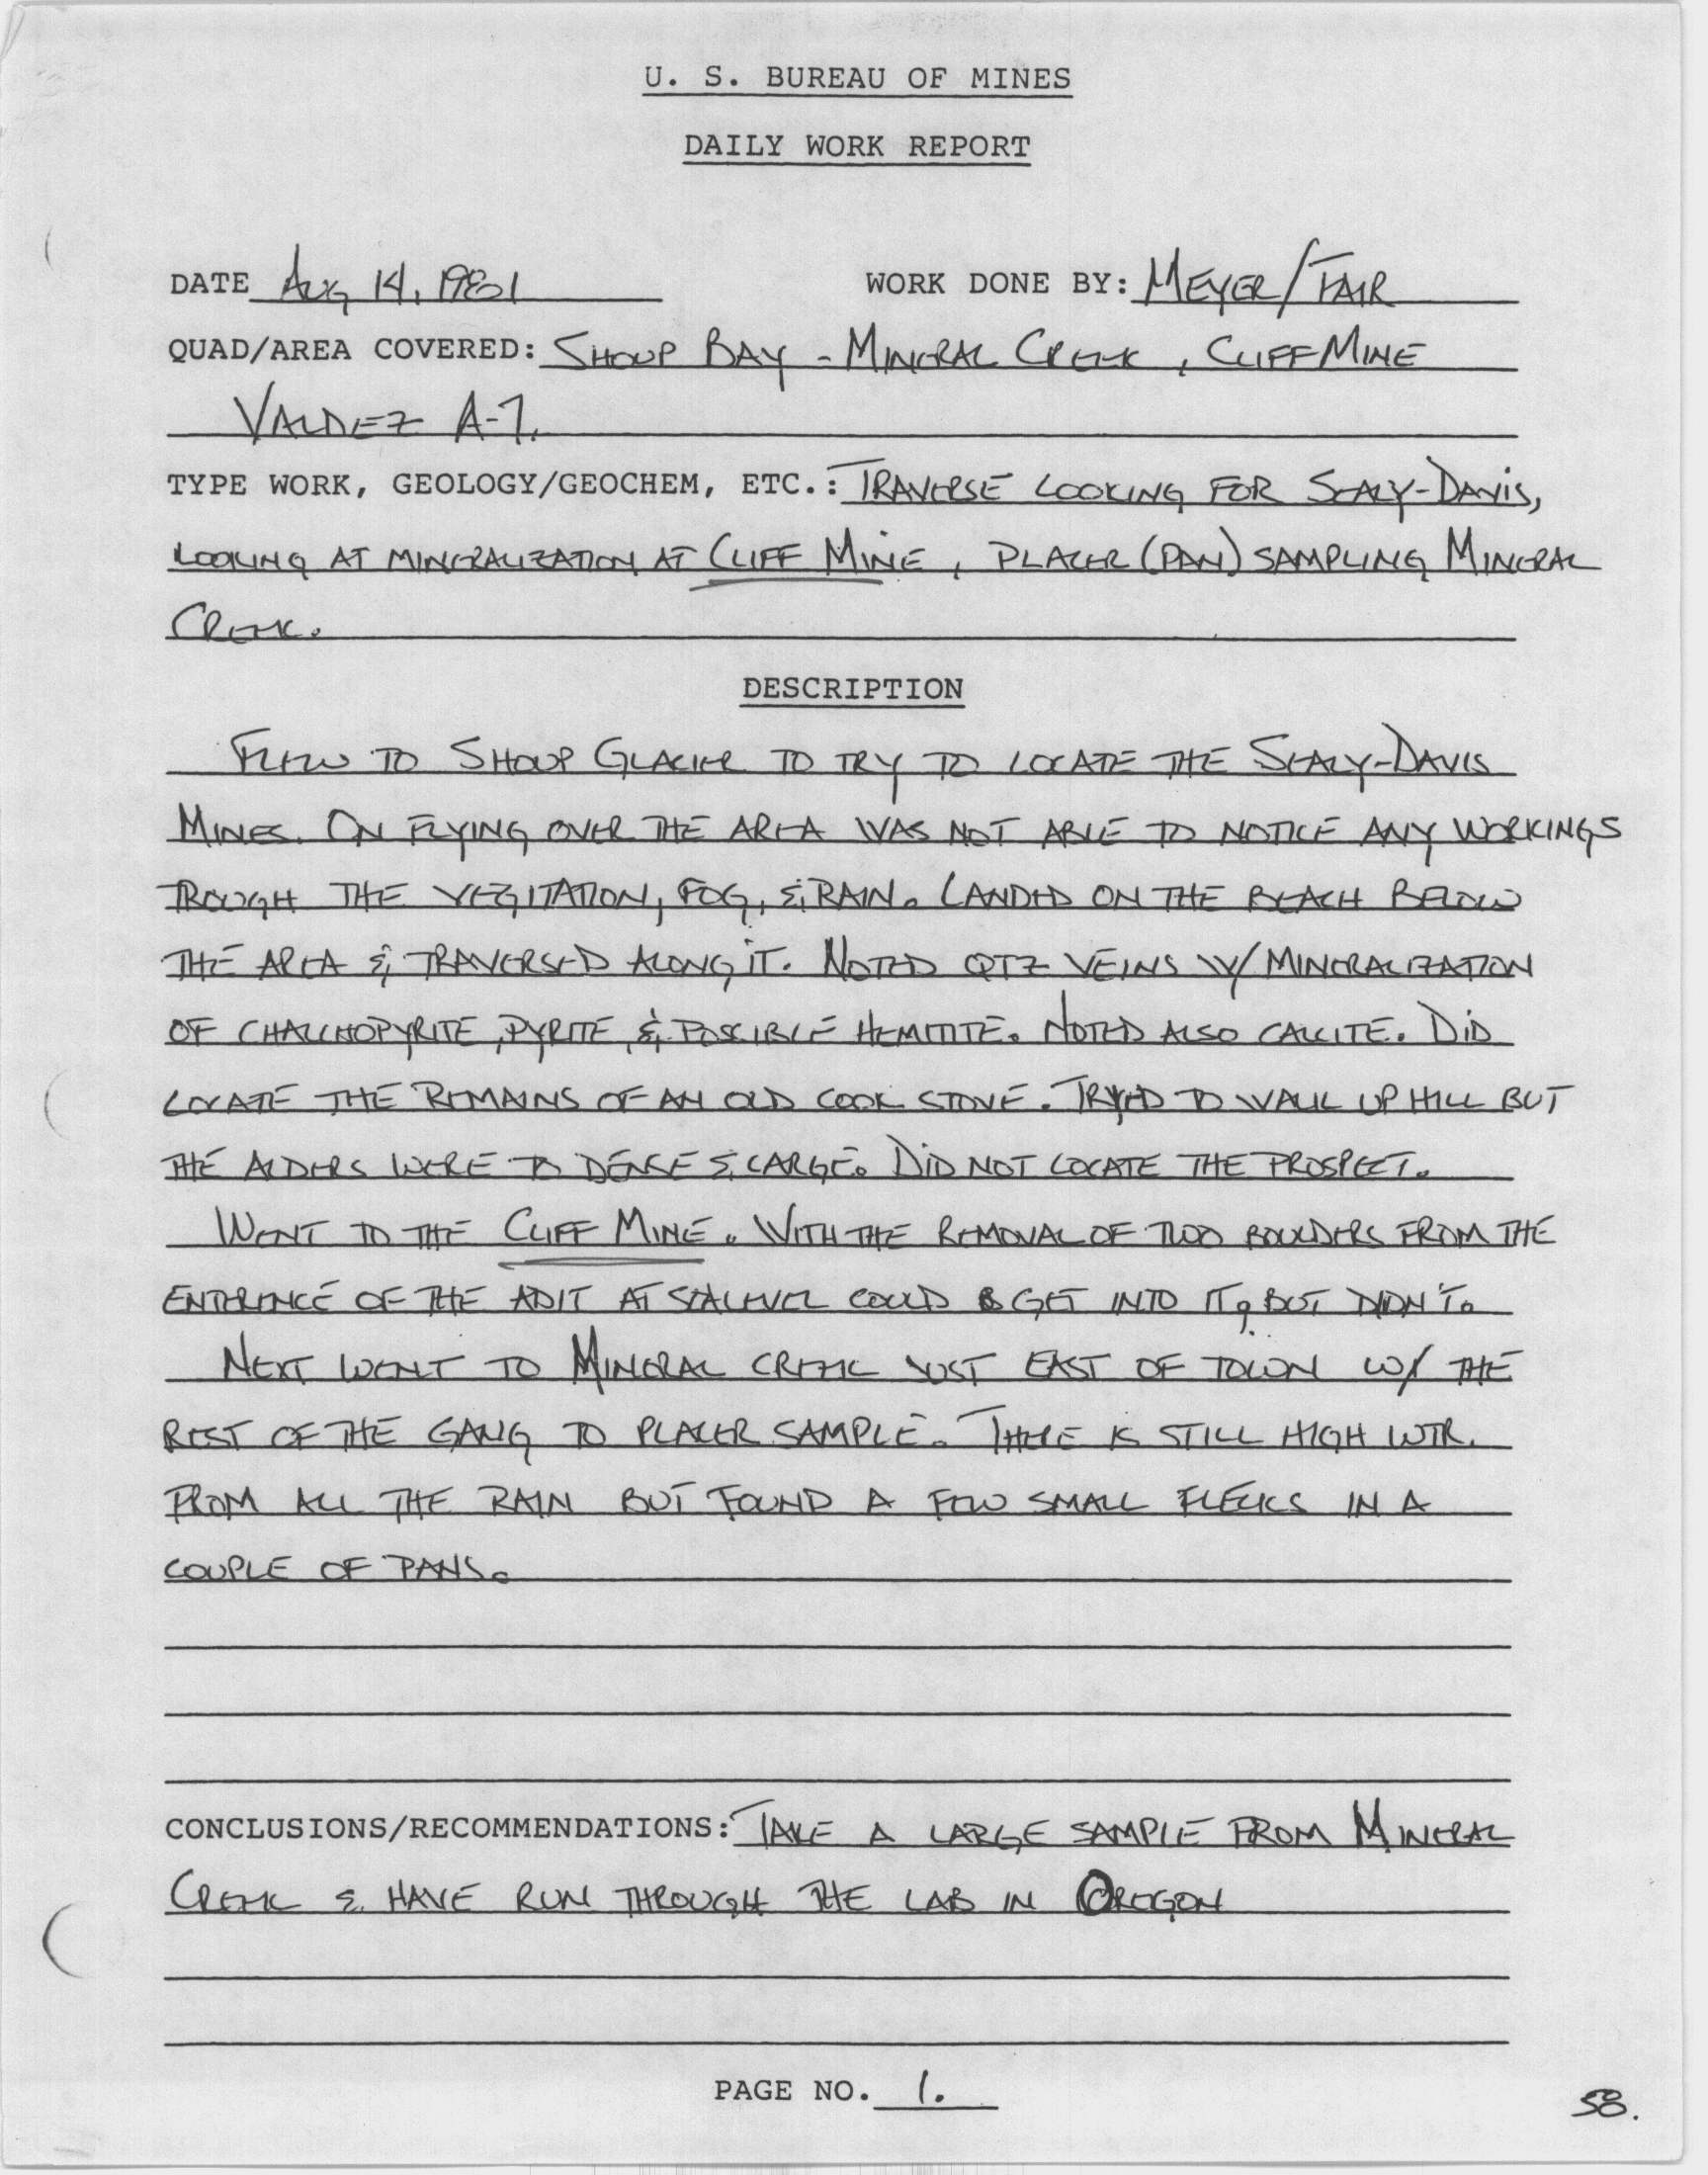 U. S. BUREAU OF MINES
DAILY WORK REPORT
DATE AUG 14, 1981 WORK DONE BY: MEYER/FAIR
QUAD/AREA COVERED: SHOUP BAY - MINERAL CREEK, CLIFF MINE
VALDEZ A-7.
TYPE WORK, GEOLOGY/GEOCHEM, ETC.: TRAVERSE LOOKING FOR SEALY-DAVIS,
LOOKING AT MINERALIZATION AT CLIFF MINE, PLACER (PAN) SAMPLING MINERAL
CREEK.
DESCRIPTION
FLEW TO SHOUP GLACIER TO TRY TO LOCATE THE SEALY-DAVIS
MINES. ON FLYING OVER THE AREA WAS NOT ABLE TO NOTICE ANY WORKINGS
TROUGH THE VEGITATION, FOG, & RAIN. LANDED ON THE BEACH BELOW
THE AREA & TRAVERSED ALONG IT. NOTED QTZ VEINS W/ MINERALIZATION
OF CHALCHOPYRITE, PYRITE, & POSSIBLE HEMITITE. NOTED ALSO CALCITE. DID
LOCATE THE REMAINS OF AN OLD COOK STOVE. TRYED TO WALK UP HILL BUT
THE ALDERS WERE TO DENSE & LARGE. DID NOT LOCATE THE PROSPECT.
WENT TO THE CLIFF MINE. WITH THE REMOVAL OF TWO BOULDERS FROM THE
ENTERENCE OF THE ADIT AT SEALEVEL COULD GET INTO IT, BUT DIDN'T.
NEXT WENT TO MINERAL CREEK JUST EAST OF TOWN W/ THE
REST OF THE GANG TO PLACER SAMPLE. THERE IS STILL HIGH WTR.
FROM ALL THE RAIN BUT FOUND A FEW SMALL FLECKS IN A
COUPLE OF PANS.
CONCLUSIONS/RECOMMENDATIONS: TAKE A LARGE SAMPLE FROM MINERAL
CREEK & HAVE RUN THROUGH THE LAB IN OREGON
PAGE NO. 1.
58.